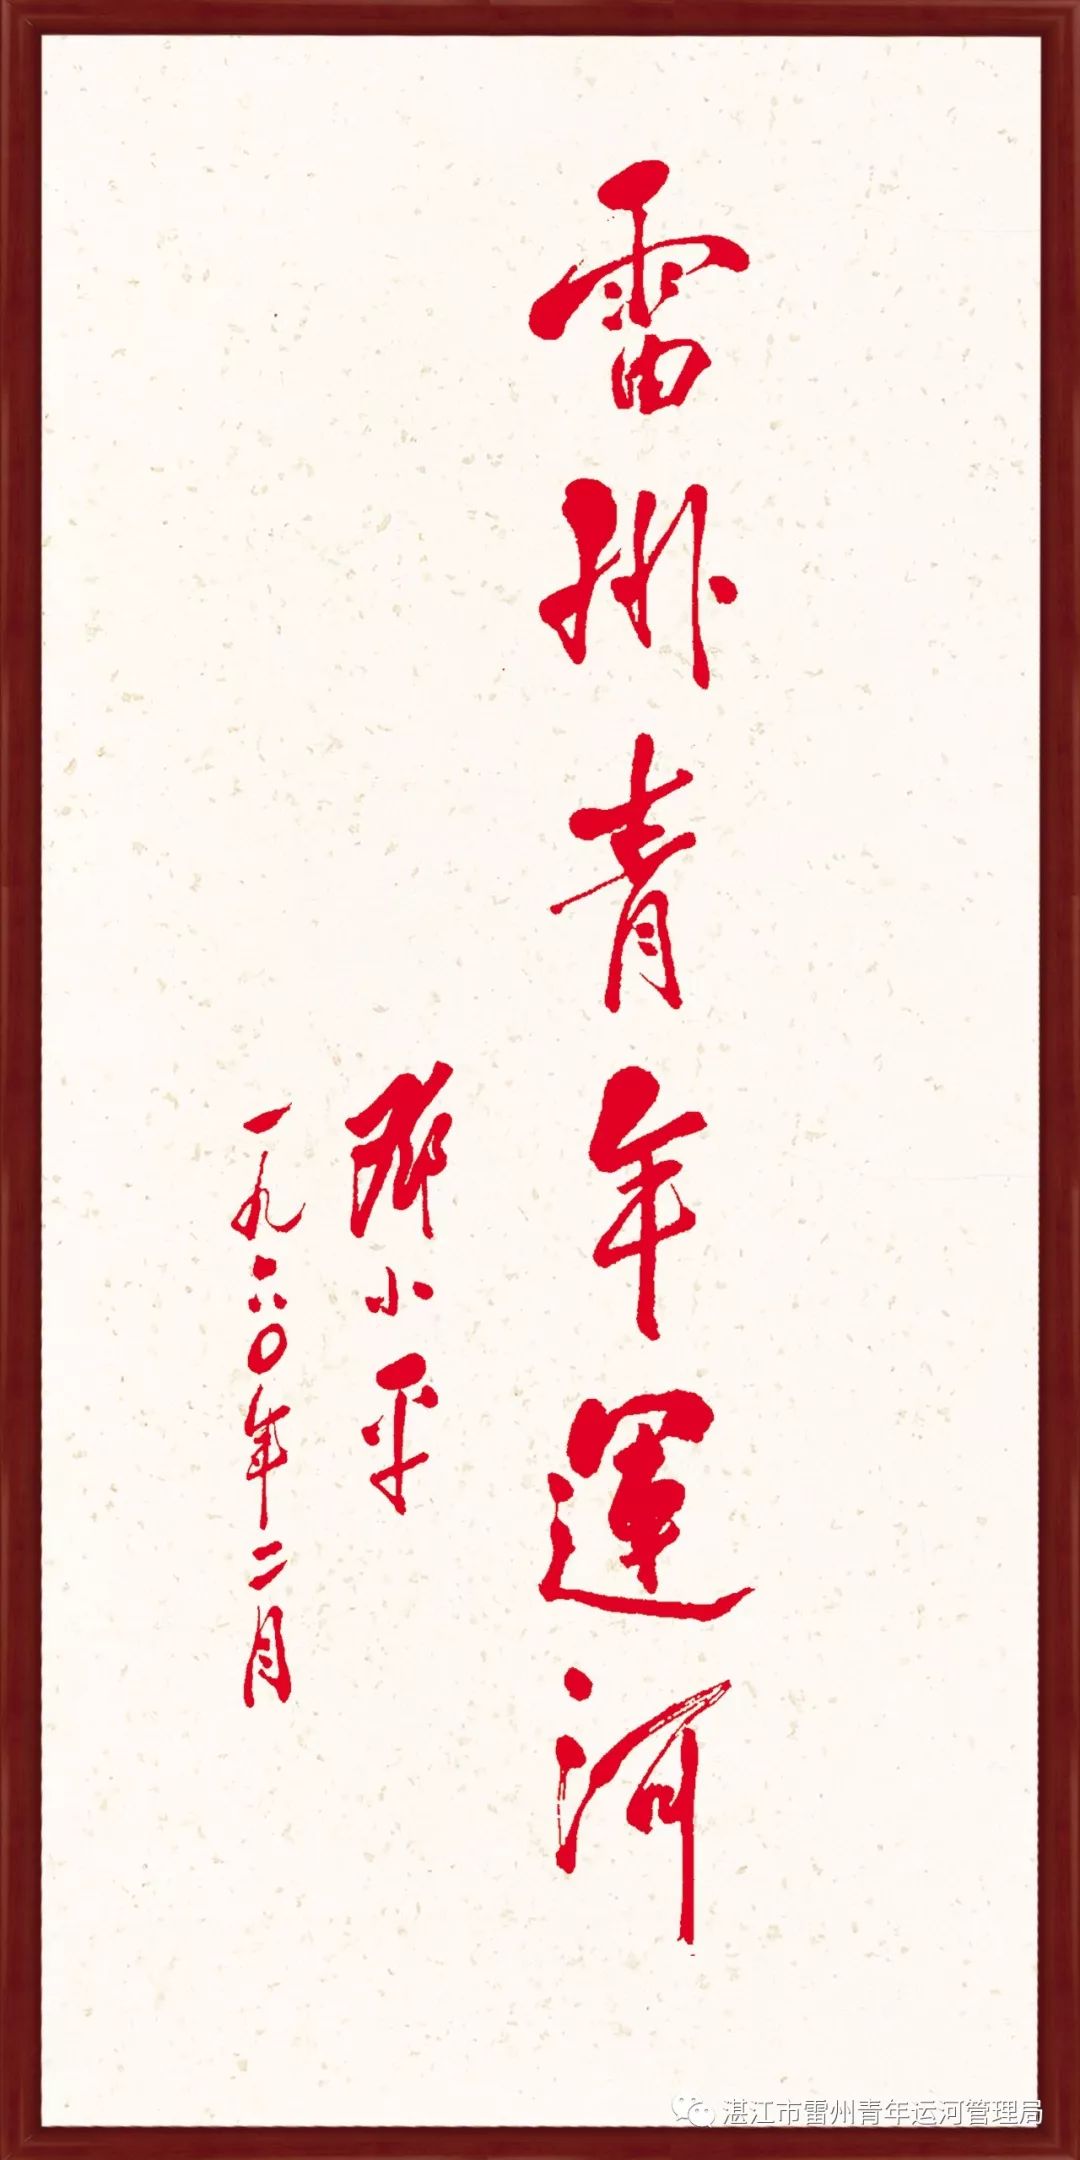 雷州青年運河
鄧小平
一九六〇年二月
湛江市雷州青年运河管理局